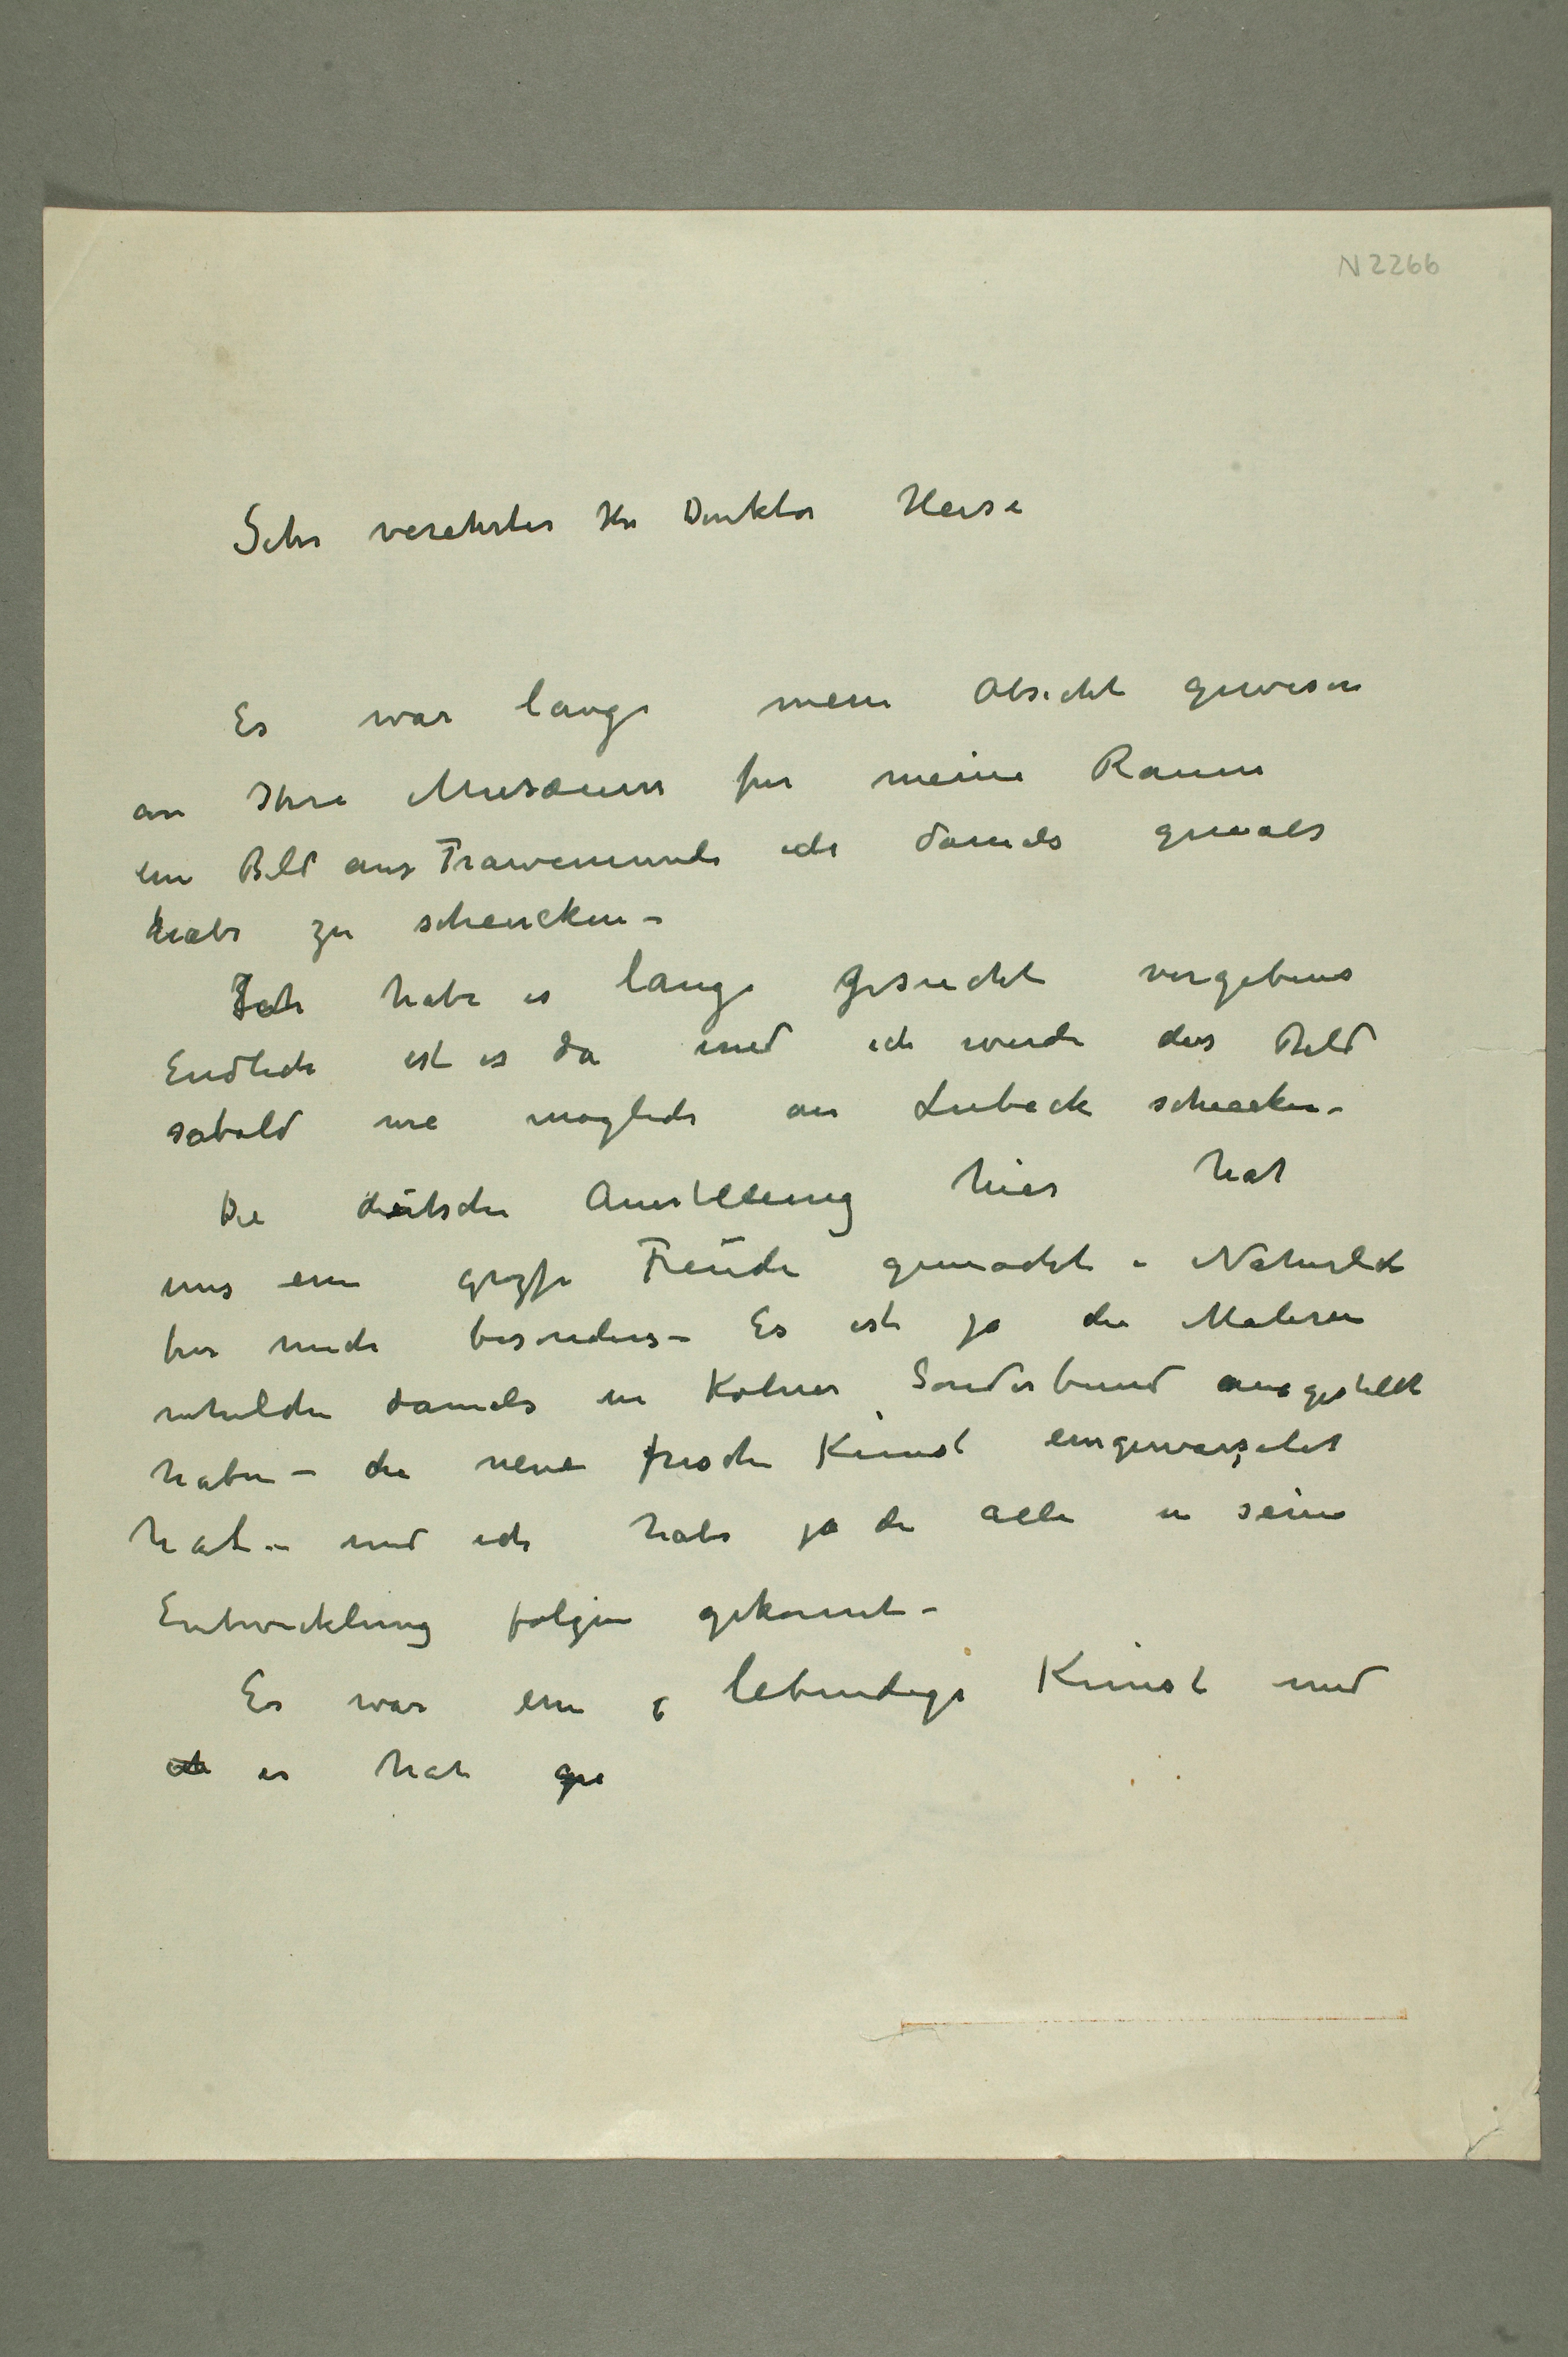 N 2266
Sehr verehrter Hr Direktor Heise
Es war lange mein Absicht gewesen
an Ihre Musæum für meine Raume
ein Bild aus Trawemunde ich damals gemalt
habe zu schencken –
Ich habe es lange gesucht vergebens
Endlich ist es da und ich werde das Bild
sobald wie möglich an Lubeck schicken –
Die deutsche Austellung hier hat
uns ein große Freude gemacht – Naturlich
für mich besonders – Es ist ja die Maleren
welche damals in Kölner Sonderbund ausgestellt
haben – die neue frische Kunst eingewurzelet
hat – und ich habe ja die alle in seine
Entwicklung folgen gekonnt –
Es war ein lebendige Kunst und
ich es hat ge